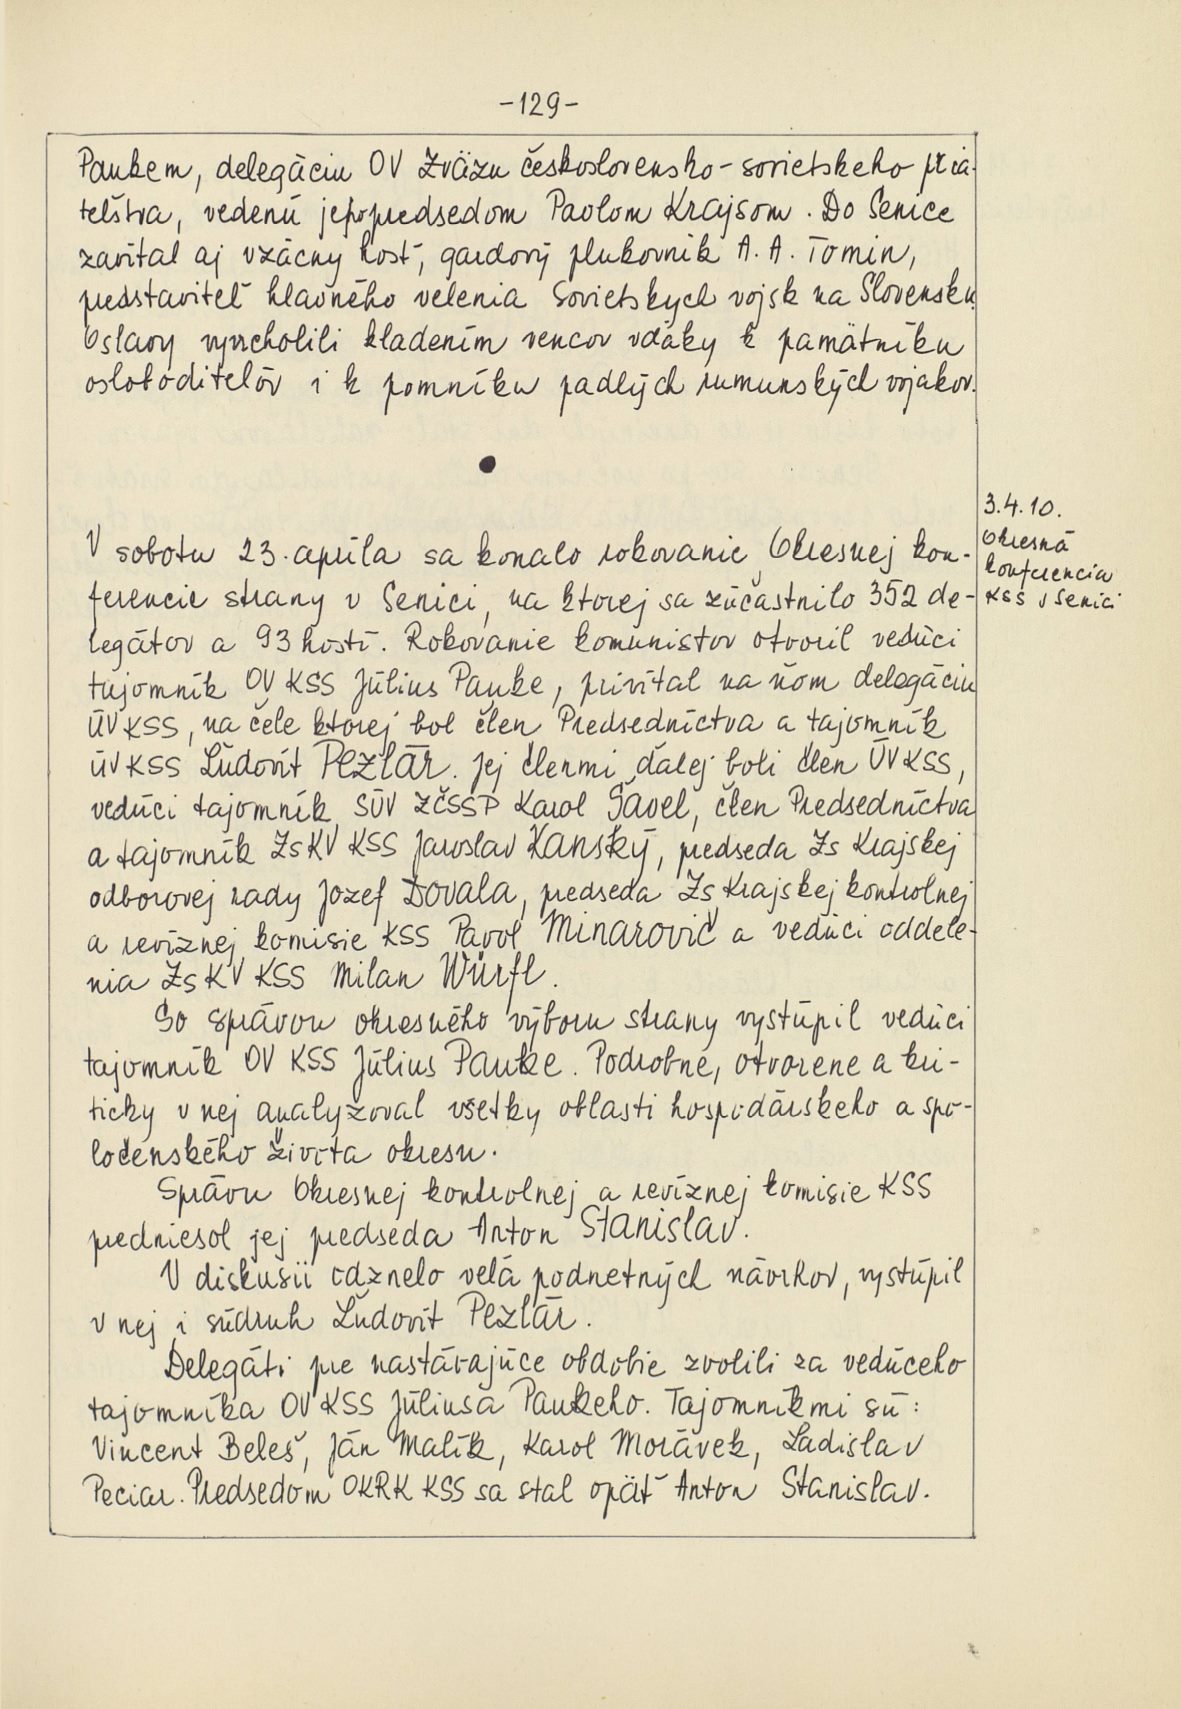 -129-
Paukem, delegáciu OV Zväzu československo-sovietskeho pria-
teľstva, vedenú jej podpredsedom Pavlom Krajsom. Do Senice
zavítal aj vzácny hosť, gardový plukovník A. A. Tomin,
predstaviteľ hlavného velenia Sovietskych vojsk na Slovensku.
Oslavy vyvrcholili kladením vencov vďaky k pamätníku
osloboditeľov i k pomníku padlých rumunských vojakov.
3.4.10.
Okresná
konferencia
KSS v Senici
V sobotu 23. apríla sa konalo rokovanie Okresnej kon-
ferencie strany v Senici, na ktorej sa zúčastnilo 352 de-
legátov a 93 hostí. Rokovanie komunistov otvoril vedúci
tajomník OV KSS Július Pauke, privítal na ňom delegáciu
ÚV KSS, na čele ktorej bol člen Predsedníctva a tajomník
ÚV KSS Ľudovít Pezlár. Jej členmi ďalej boli člen ÚV KSS,
vedúci tajomník SÚV ZČSSP Karol Šavel, člen Predsedníctva
a tajomník ZsKV KSS Jaroslav Kanský, predseda Zs Krajskej
odborovej rady Jozef Dovala, predseda Zs Krajskej kontrolnej
a revíznej komisie KSS Pavol Minarovič a vedúci oddele-
nia ZsKV KSS Milan Würfl.
So správou okresného výboru strany vystúpil vedúci
tajomník OV KSS Július Pauke. Podrobne, otvorene a kri-
ticky v nej analyzoval všetky oblasti hospodárskeho a spo-
ločenského života okresu.
Správu Okresnej kontrolnej a revíznej komisie KSS
predniesol jej predseda Anton Stanislav.
V diskusii odznelo veľa podnetných návrhov, vystúpil
v nej i súdruh Ľudovít Pezlár.
Delegáti pre nastávajúce obdobie zvolili za vedúceho
tajomníka OV KSS Júliusa Paukeho. Tajomníkmi sú:
Vincent Beleš, Ján Malík, Karol Morávek, Ladislav
Peciar. Predsedom OKRK KSS sa stal opäť Anton Stanislav.